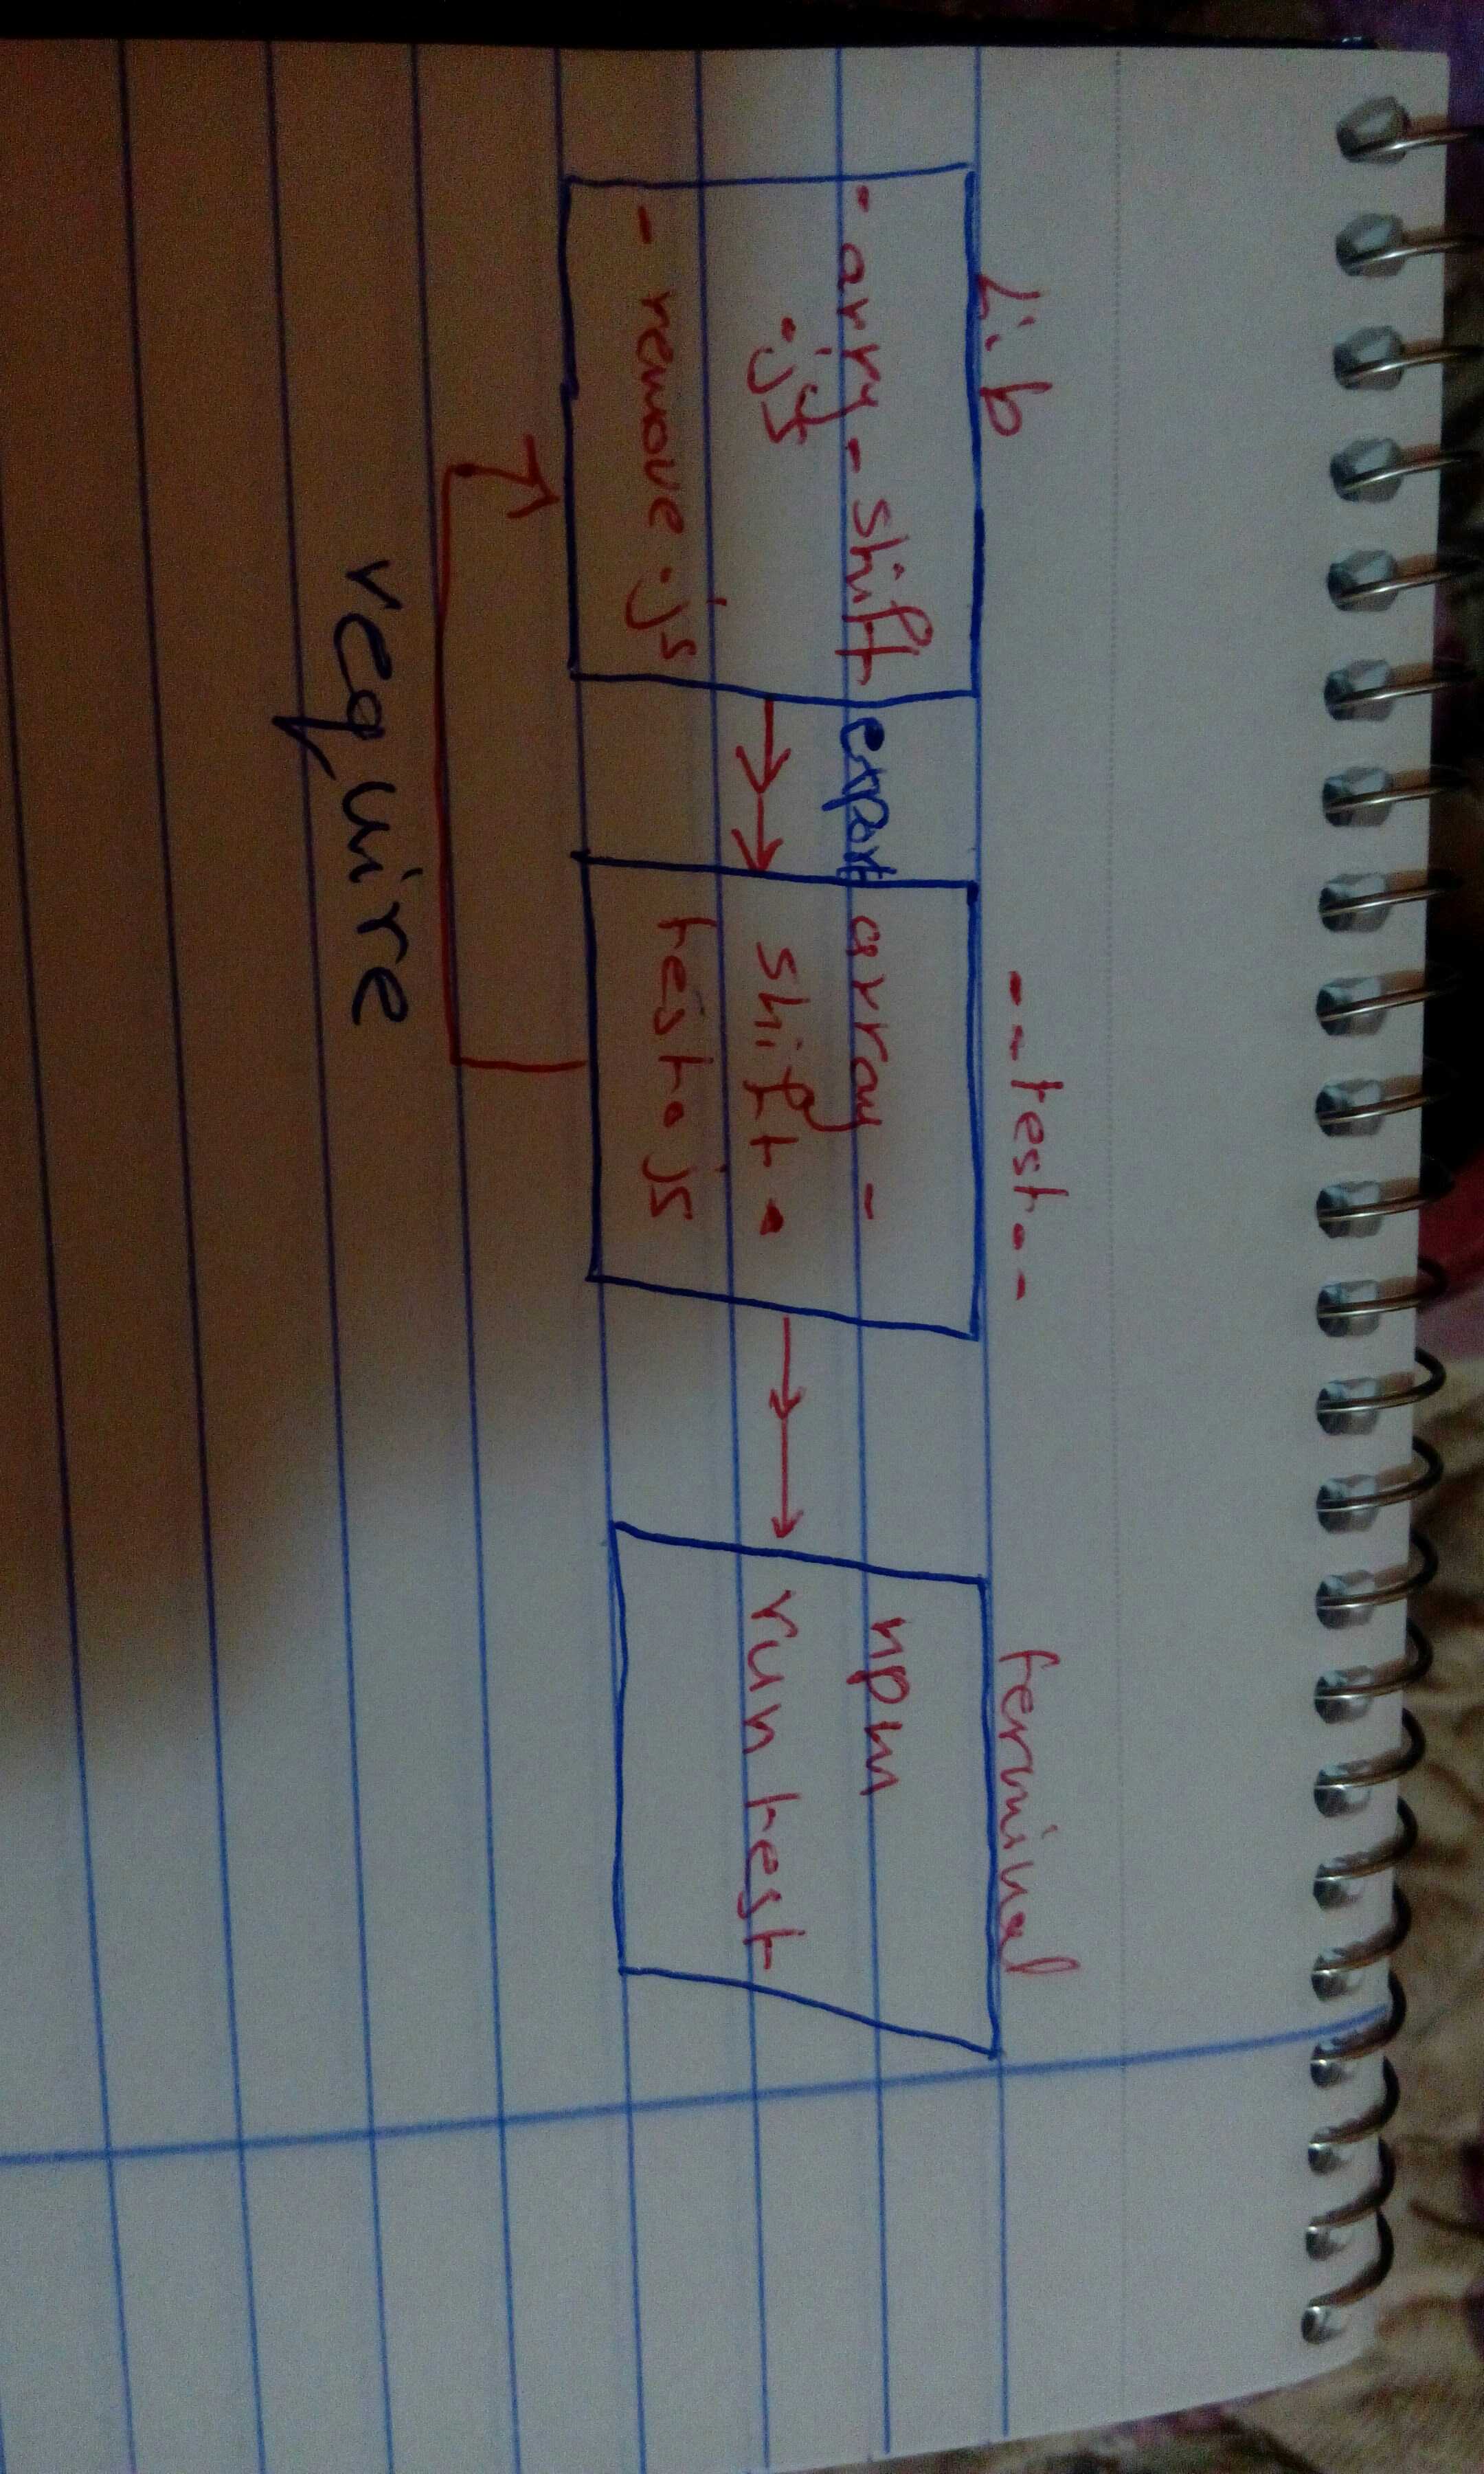 Lib
- arry - shift
.js
- remove .js
export
-- test --
array -
shift .
test.js
terminal
npm
run test
require